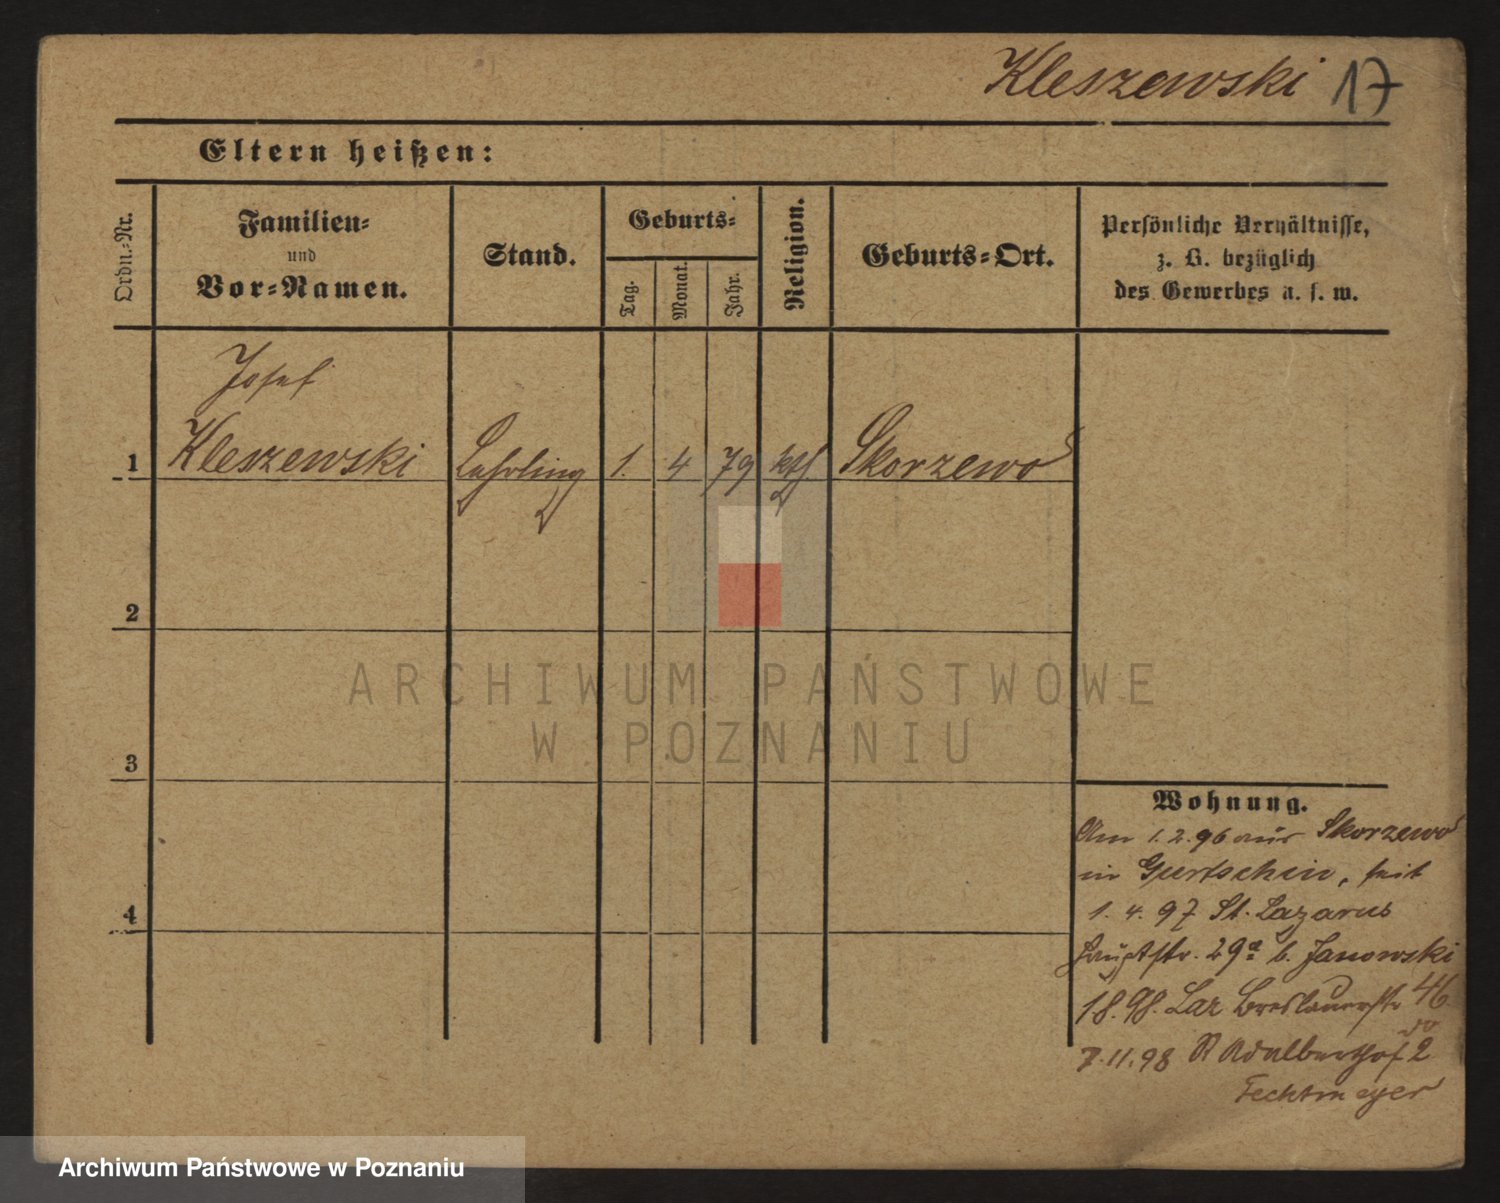 Kleszewski 17
Eltern heißen:
Ordn.-Nr.
Familien-
und
Vor-Namen.
Stand.
Geburts-
Tag.
Monat.
Jahr.
Religion.
Geburts-Ort.
Persönliche Verhältnisse,
z. B. bezüglich
des Gewerbes u. s. w.
Josef
1 Kleszewski Lehrling 1. 4 79 kth. Skorzewo
2
3
4
Wohnung.
Am 1.2.96 aus Skorzewo
in Gurtschin, seit
1. 4. 97 St. Lazarus
Hauptstr. 29a b. Janowski
1.8.98. Laz Breslauerstr 46
7.11.98 Adalberthof 2
Techtmeyer
ARCHIWUM PAŃSTWOWE
W POZNANIU
Archiwum Państwowe w Poznaniu